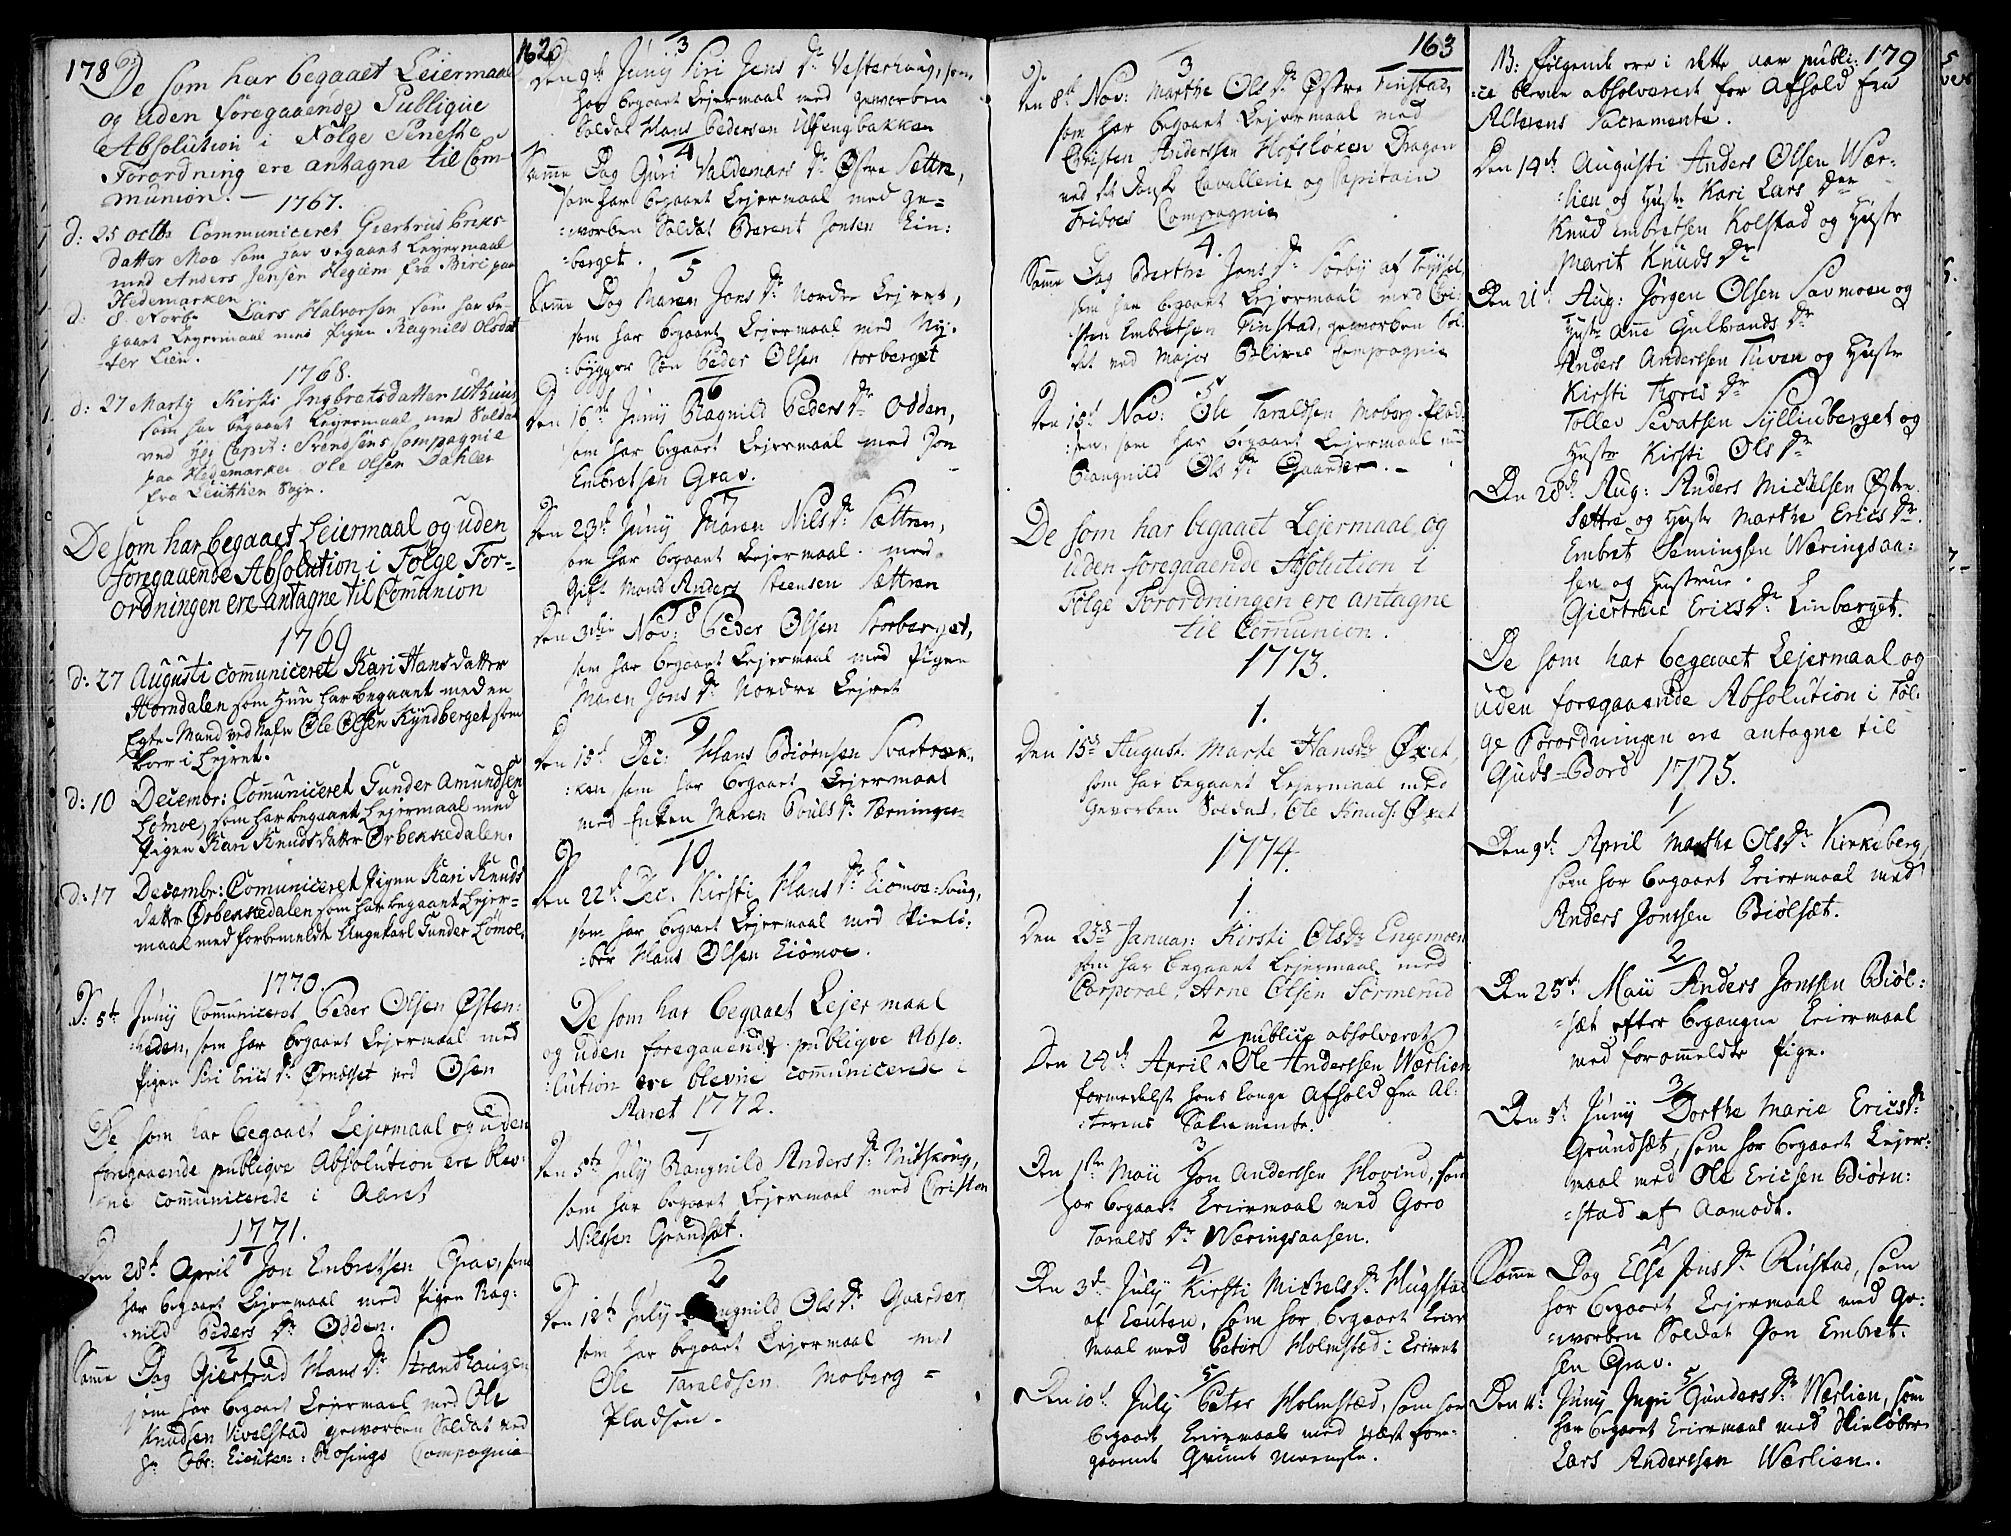 178
De som har begaaet Leiermaal
og uden foregaaende Publique
Absolution i Følge Seneste
Forordning ere antagne til Com-
munion. —
1767.
d: 25 octb: Communiceret Giertrud Erics-
datter Moe som har begaaet Leyermaal
med Anders Jensen Hegum fra Biri paa
Hedemarken
d: 8 Novb: Lars Halvorsen som har be-
gaaet Leyermaal med Pigen Ragnild Olsdat
-ter Lien.
1768.
d: 27 Martij Kirsti Ingbretsdatter Uthuus
som har begaaet Leyermaal med Soldat
ved Capit: Svendsens Compagnie
paa Hedemarken Ole Olsen Dahlen
fra Leuthen Sogn.
De som har begaaet Leiermaal og uden
foregaaende Absolution i Følge For-
ordningen ere antagne til Comunion
1769
d: 27 Augusti communiceret Kari Hansdatter
Horndalen som hun har begaaet med en
Egte-Mand ved Nafn Ole Olsen Kyndberget som
boer i Lejret.
d: 10 Decembr: Communiceret Gunder Amundsen
Lømoe, som har begaaet Lejermaal med
Pigen Kari Knudsdatter Ørbenkedalen.
d: 17 Decembr: Comuniceret Pigen Kari Knuds
datter Ørbenkedalen som har begaaet Lejer-
maal med forbemeldte Ungekarl Gunder Lømoe.
1770.
D: 5te Junij Communiceret Peder Olsen Østen-
heden, som har begaaet Lejermaal med
Pigen Siri Erics Dr Ørnesset ved Osen
De som har begaaet Lejermaal og uden
foregaaende publiqve Absolution ere blev-
ne communicerede i Aaret
1771.
1
Den 28de April Jon Embretsen Grav, som
har begaaet Lejermaal med Pigen Rag-
nild Peders Dr Odden.
2
Samme Dag Giertrud Hans Dr Strandhaugen
som har begaaet Lejermaal med Ole
Knudsen Kivelstad geworben Soldat ved
Hr Obr: Lieuten: Rosings Compagnie
162
3
Den 9de Junij Siri Jens Dr Vesterhaug, som
har begaaet Lejermaal med geworben
Soldat Hans Pedersen Ulfengbakken
4
Samme Dag Guri Valdemars Dr Østre Sættre,
som har begaaet Lejermaal med ge-
-worben Soldat Berent Jonsen Lin:
-berget.
5
Samme Dag Maren Jons Dr Nordre Lejret,
som har begaaet Lejermaal med Ny-
:bygger Søn Peder Olsen Storberget
6
Den 16de Junij Ragnild Peders Dr Odden,
som har begaaet Lejermaal med Jon
Embretsen Grav.
7
Den 23de Junij Maren Nils Dr Sættren,
som har begaaet Lejermaal med
Gift Mand Anders Steensen Sættren
8
Den 3die Nov: Peder Olsen Storberget,
som har begaaet Lejermaal med Pigen
Maren Jons Dr Nordre Lejret
9
Den 15de Dec: Hans Biørnsen Svartbæk-
:ken som har begaaet Lejermaal
med Enken Maren Pouls Dr Tærninge-
10
Den 22de Dec. Kirsti Hans Dr Liømoe-Haug,
som har begaaet Lejermaal med Skielø:
:ber Hans Olsen Liømoe.
De som har begaaet Lejermaal
og uden foregaaende publiqve Abso-
:lution ere blevne communicerede i
Aaret 1772.
1
Den 5te July Rangnild Anders Dr Mitskoug,
som har begaaet Lejermaal med Cristen
Nilssen Grundsæt.
2
Den 12te July Rangnild Ols Dr Gaarder,
som har begaaet Lejermaal med
Ole Taraldsen Moberg-
Pladsen.
163
3
Den 8de Nov: Marthe Ols Dr Østre Finstad,
som har begaaet Lejermaal med
Cristen Anderssen Hofsløken Dragon
ved det Dansk Cavallerie og Capitain
Friboes Compagnie
4.
Samme Dag Berthe Jons Dr Sørby af Trysel
som har begaaet Lejermaal med Cri-
sten Embretsen Finstad, geworben Sol-
dat ved Major Blixes Compagnie
5
Den 15de Nov: Ole Taraldsen Moberg-Plad-
:sen, som har begaaet Lejermaal med
Rangnild Ols Dr Gaarder. —
De som har begaaet Lejermaal og
uden foregaaende Absolution i
Følge Forordningen ere antagne
til Communion.
1773.
1.
Den 15de August. Marte Hansdr Øxet,
som har begaaet Lejermaal med
Geworben Soldat, Ole Knuds: Øxet
1774.
1
Den 23de Januar: Kirsti Olsdr Engemoen
som har begaaet Lejermaal med
Corporal, Arne Olsen Sørmerud
2 publice absolveret
Den 24de April Ole Anderssen Wærlien
formedelst hans lange Afhold fra Al-
:terens Sakramente.
3
Den 1ste Maii Jon Anderssen Hovind, som
har begaaet Leiermaal med Goro
Taralds Dr Wæringsaasen.
4
Den 3de July Kirsti Mickels Dr Hugstad
af Leuten, som har begaaet Leier
maal med Peter Holmstæd i Leiret
5
Den 10de July Peter Holmstæd, som har
begaaet Leiermaal med næst fore-
gaaende Qvinde Menneske.
179
NB: følgende ere i dette aar publi-
:ce blevne absolverede for Afhold fra
Alterens Sacramente.
Den 14de Augusti Anders Olsen Wær-
:lien og Hustr Kari Lars Dr
Knud Embretsen Kolstad og Hustr
Marit Knuds Dr
Den 21de Aug: Jørgen Olsen Savmoen og
Hustr Anne Gulbrands Dr
Anders Anderssen Tuven og Hustr
Kirsti Tores Dr
Tollev Sevatsen Syllindberget og
Hustr Kirsti Ols Dr
Den 28de Aug: Anders Mickelsen Østre
Sættre og Hustr Marthe Erics Dr.
Embret Semingsen Wæringsaa:
sen og Hustrue.
Giertrue Erics Dr Linberget.
De som har begaaet Lejermaal og
uden foregaaende Absolution i Føl-
ge Forordningen ere antagne til
Guds=Bord 1775.
1
Den 9de April Marthe Ols Dr Kirkeberg,
som har begaaet Leiermaal med
Anders Jonssen Biølsæt.
2
Den 25de Maii Anders Jonssen Biøl-
:sæt efter begangne Leiermaal
med forommeldte Pige.
3
Den 5te Junij Dorthe Marie Erics Dr
Grundsæt, som har begaaet Leier-
maal med Ole Ericsen Biørn:
:stad af Aamodt.
4
Samme Dag Else Jons Dr Rustad, som
har begaaet Leiermaal med Ge-
:worben Soldat Jon Embret-
sen Grav.
5
Den 11: Junij Ingri Gunders Dr Wærlien, som
har begaaet Leiermaal med Skieløber
Lars Anderssen Wærlien.